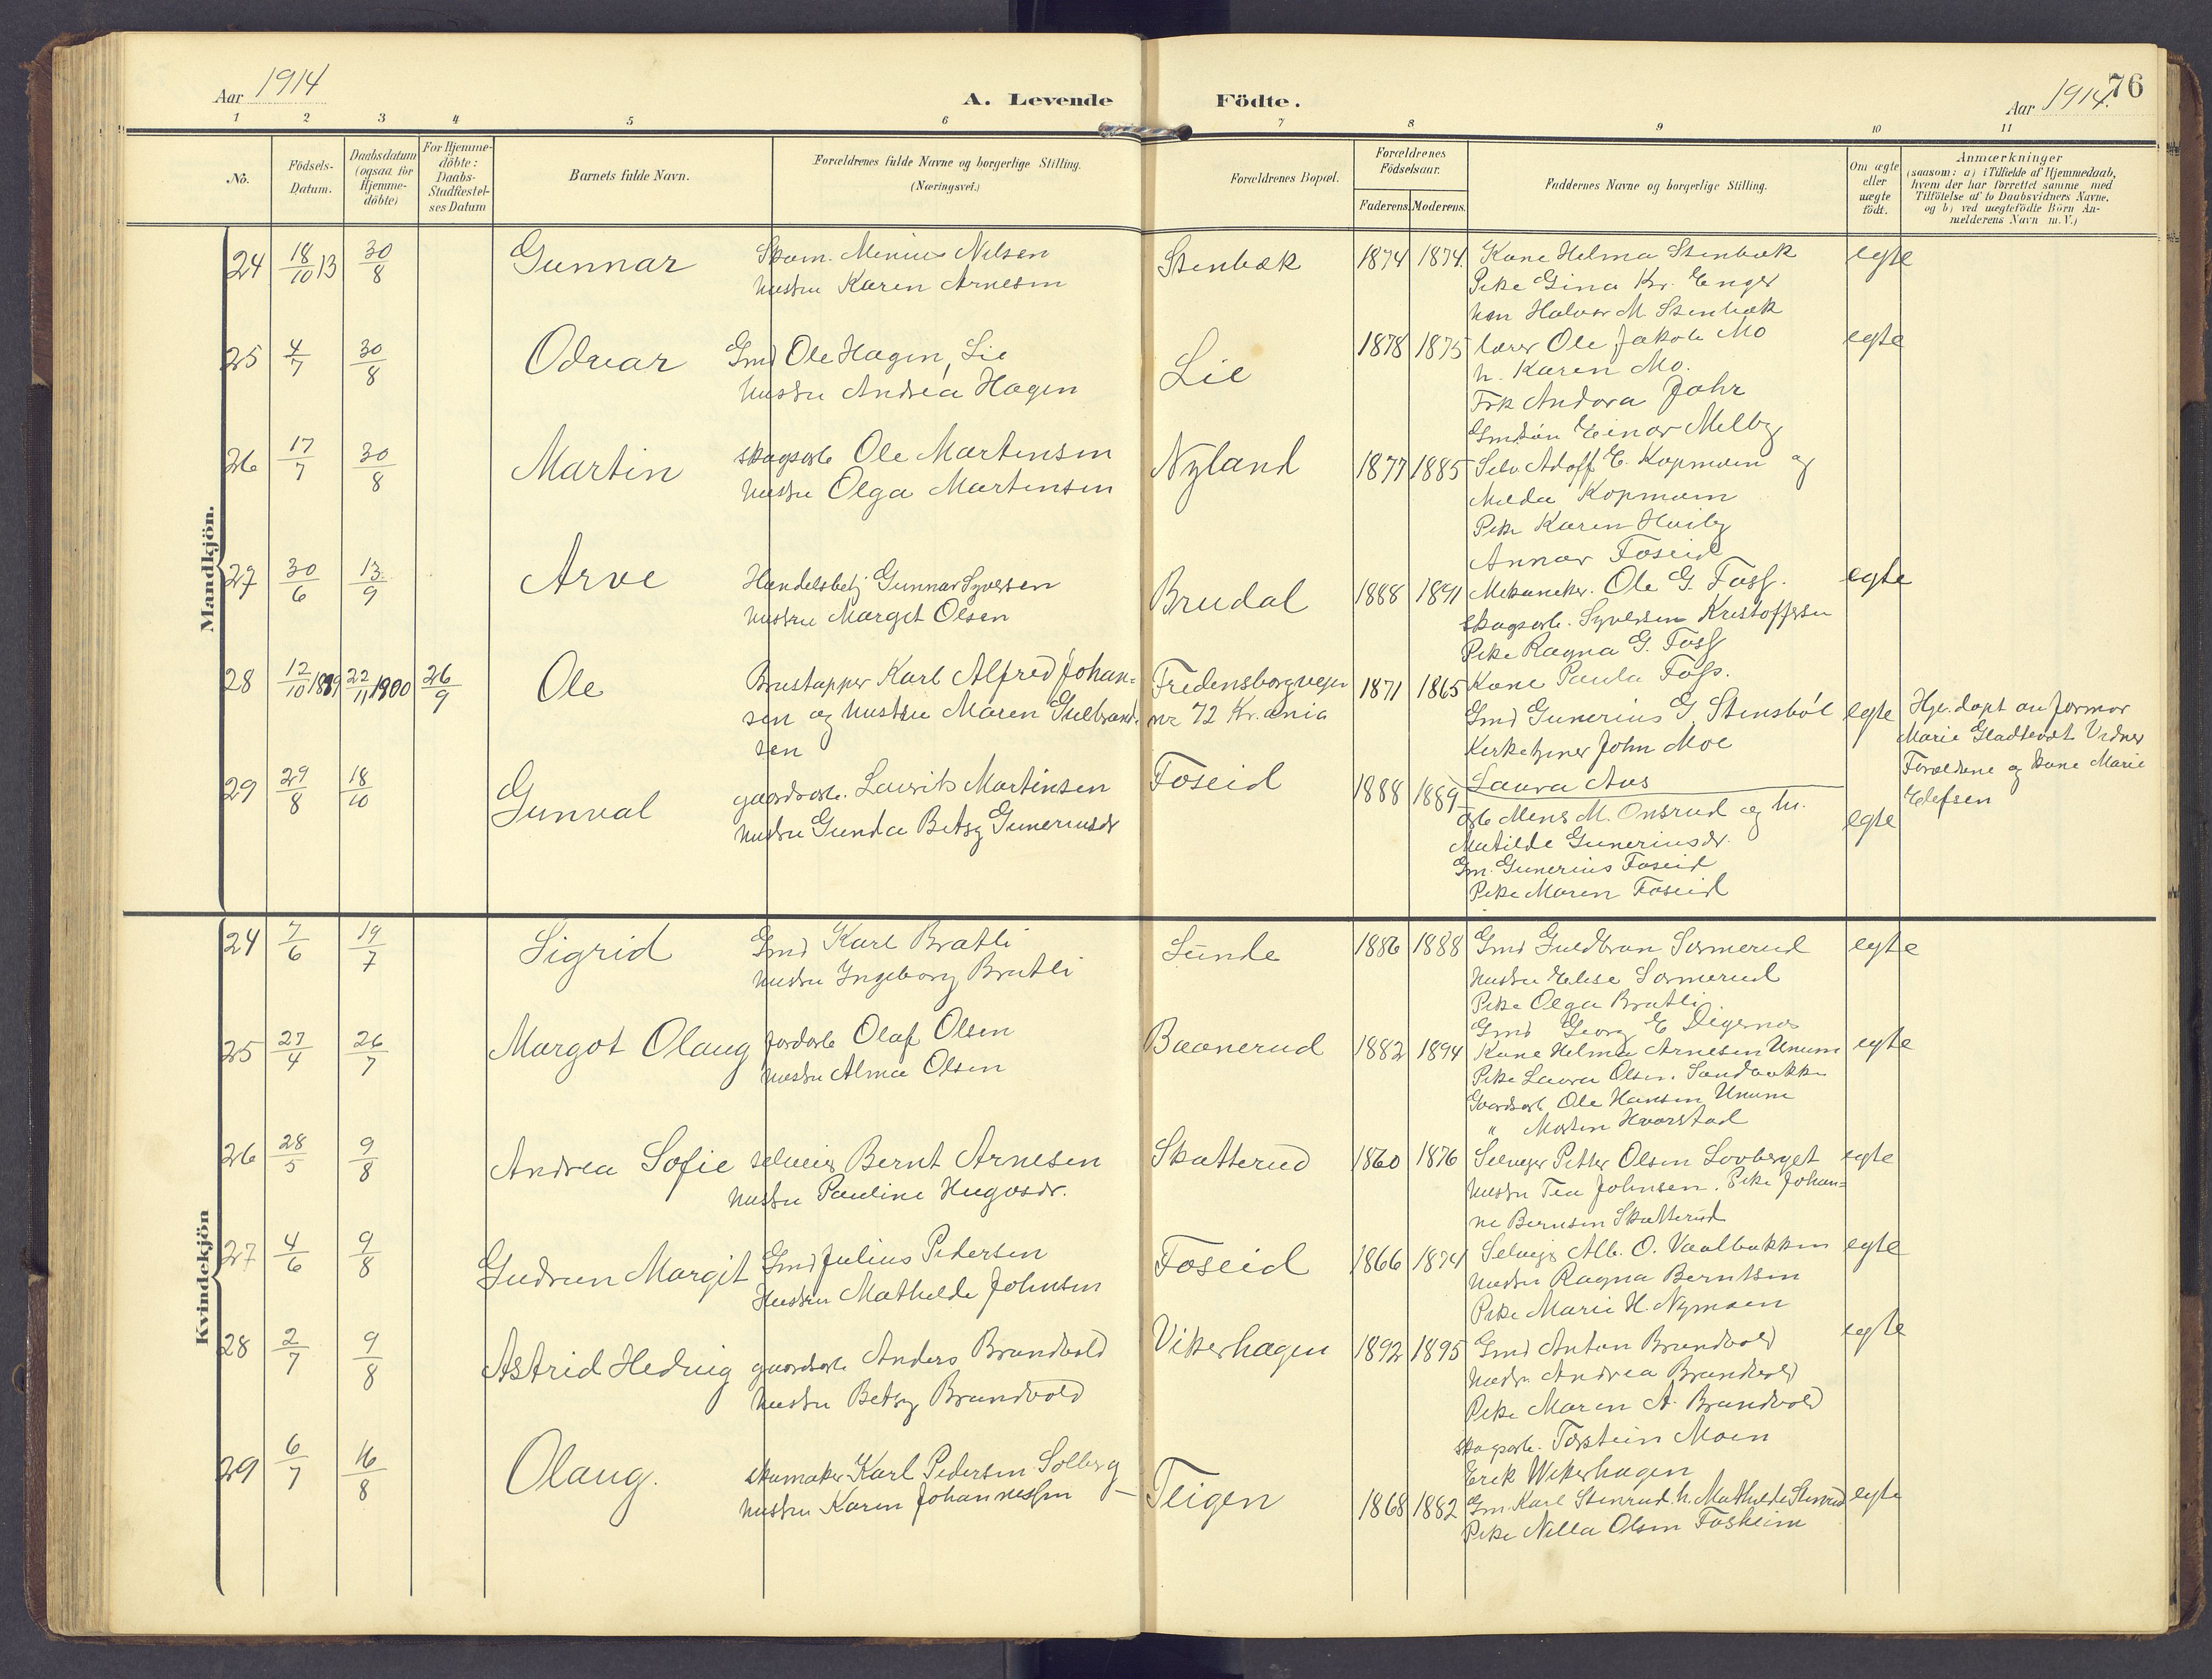 Aar 1914
A. Levende Födte.
Aar 1914.
76
1 2 3 4 5 6 7 8 9 10 11
No.
Födsels-
Datum.
Daabsdatum
(ogsaa for
Hjemme-
döbte)
For Hjemme-
döbte:
Daabs-
Stadfæstel-
ses Datum
Barnets fulde Navn.
Forældrenes fulde Navne og borgerlige Stilling.
(Næringsvei.)
Forældrenes Bopæl.
Forældrenes
Födselsaar.
Faderens. Moderens.
Faddernes Navne og borgerlige Stilling.
Om ægte
eller
uægte
födt.
Anmærkninger
(saasom: a) i Tilfælde af Hjemmedaab,
hvem der har forrettet samme med
Tilföielse af to Daabsvidners Navne.
og b) ved uægtefödte Börn An-
melderens Navn m. V.)
Mandkjön.
24 18/10 13 30/8 Gunnar Skom. Minius Nilsen Stenbæk 1874 1874. Kone Helma Stenbæk egte
hustru Karen Arnesen Pike Gina Kr. Enger
Halvor M. Stenbæk
25 4/7 30/8 Odvar Gmd Ole Hagen, Lie Lie 1878 1875 lærer Ole Jakob Mo egte
hustru Andrea Hagen h. Karen Mo.
Frk Andora Johr
Gmdsön Einar Melby
26 17/7 30/8 Martin skogsarb Ole Martinsen Nyland 1877 1885 Selv Adolf E. Kopmoen og
hustru Olga Martinsen Milda Kopmoen
Pike Karen Huiby
Annar Foseid
27 30/6 13/9 Arve Handelsbetj Gunnar Syversen Brudal 1888 1891 Mekaneker. Ole G. Foss. egte
hustru Margit Olsen skogsarb. Syversen Kristoffersen
Pike Ragna G. Foss
28 12/10 1899 22/11 1900 26/9 Ole Brustapper Karl Alfred Johan= Fredensborgveien 1871 1865 Kone Paula Foss.
sen og hustru Maren Gulbrand- nr 72 Kr.ania Gmd Gunerius G. Stensböl egte Hje. döpt av farmor
sen Kirketjener John Moe Marie Gladtvedt Vidner
Laura Aas Forældrene og kone Marie
Elefsen
29 29/8 18/10 Gunval gaardsarb. Laurits Martinsen Foseid 1888 1889 Arb Mens M. Onsrud og h. egte
hustru Gunda Betsy Guneriusdr Matilde Guneriusdr.
Gm. Gunerius Foseid
Pike Maren Foseid
Kvindekjön
24 7/6 19/7 Sigrid Gmd Karl Bratli Sunde 1886 1888 Gmd Guldbran Sormerud egte
hustru Ingeborg Bratli hustru Elise Sormerud
Pike Olga Bratli.
Gmd Georg E Digernes
25 27/4 26/7 Margot Olaug jordarb Olaf Olsen Baanerud 1882 1894 Kone Helma Arnesen Unum egte
hustru Alma Olsen Pike Laura Olsen. Sandbakken
Gaardsarb Ole Hansen Unum
" Morten Hvorstad
26 28/5 9/8 Andrea Sofie selveier Bernt Arnesen Skatterud 1860 1876 Selveger Petter Olsen Lovberget egte
hustru Pauline Hugosdr. hustru Tea Johnsen. Pike Johan=
ne Bernsen Skatterud
27 4/6 9/8 Gudrun Margit Gmd Julius Pedersen Foseid 1866 1874 Selveger Alb. O. Vaalbakken egte
Hustru Mathilde Johnsen hustru Ragna Berntsen
Pike Marie H. Nymoen
28 2/7 9/8 Astrid Hedvig gaardsarb Anders Brandvold Vikerhagen 1892 1895 Gmd Anton Brandvold egte
hustru Betsy Brandvold hustr. Andrea Brandvold
Pike Maren A. Brandvold
skogsarb. Torstein Moen
Erik Wikerhagen
29 6/7 16/8 Olaug. skomaker Karl Pedersen Solberg Teigen 1868 1882 Gm. Karl Stenrud h. Mathilde Stenrud egte
hustru Karen Johannessen Pike Nilla Olsen Fosheim